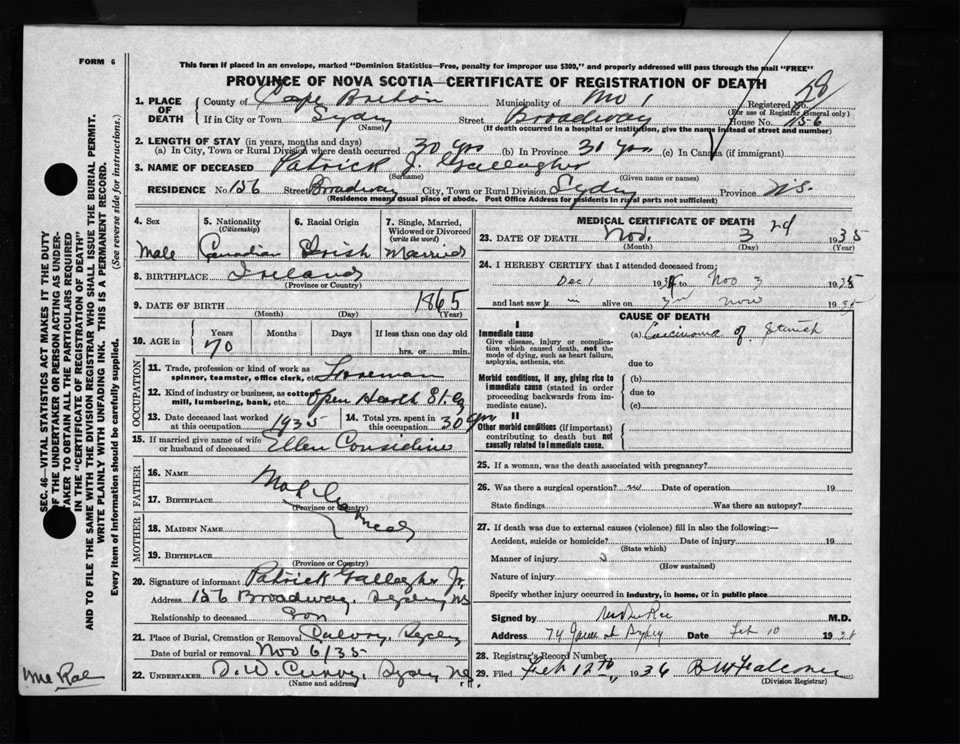 FORM 6
This form if placed in an envelope, marked "Dominion Statistics—Free, penalty for improper use $300," and properly addressed will pass through the mail "FREE"
PROVINCE OF NOVA SCOTIA—CERTIFICATE OF REGISTRATION OF DEATH
28
1. PLACE OF DEATH County of Cape Breton Municipality of No 1 Registered No.
(For use of Registrar General only)
If in City or Town Sydney Street Broadway House No. 156
(Name) (If death occurred in a hospital or institution, give the name instead of street and number)
2. LENGTH OF STAY (in years, months and days)
(a) In City, Town or Rural Division where death occurred 30 yrs (b) In Province 30 yrs (c) In Canada (if immigrant)
3. NAME OF DECEASED Patrick J. Gallagher
(Surname) (Given name or names)
RESIDENCE No 156 Street Broadway City, Town or Rural Division Sydney Province N.S.
(Residence means usual place of abode. Post Office Address for residents in rural parts not sufficient)
4. Sex 5. Nationality (Citizenship) 6. Racial Origin 7. Single, Married, Widowed or Divorced (write the word)
Male Canadian Irish Married
8. BIRTHPLACE Ireland
(Province or Country)
9. DATE OF BIRTH 1865
(Month) (Day) (Year)
10. AGE in Years Months Days If less than one day old
70 hrs. or min.
OCCUPATION
11. Trade, profession or kind of work as spinner, teamster, office clerk, etc. Foreman
12. Kind of industry or business, as cotton mill, lumbering, bank, etc. Open Hearth St. Co
13. Date deceased last worked at this occupation 1935 14. Total yrs. spent in this occupation 30 yrs
15. If married give name of wife or husband of deceased Ellen Considine
FATHER
16. NAME
17. BIRTHPLACE
(Province or Country)
Not
MOTHER
18. MAIDEN NAME
19. BIRTHPLACE
(Province or Country)
20. Signature of informant Patrick Gallagher Jr.
Address 156 Broadway, Sydney NS
Relationship to deceased Son
21. Place of Burial, Cremation or Removal Calvary, Sydney
Date of burial or removal Nov 6/35
22. UNDERTAKER D. W. Sydney N.S.
(Name and address)
MEDICAL CERTIFICATE OF DEATH
23. DATE OF DEATH Nov. 3rd 1935
(Month) (Day) (Year)
24. I HEREBY CERTIFY that I attended deceased from:
Dec 1 193 to Nov 3 1935
and last saw h im alive on 3rd Nov 1935
CAUSE OF DEATH
I
Immediate cause (a) Carcinoma of Stomach
Give disease, injury or complication which caused death, not the mode of dying, such as heart failure, asphyxia, asthenia, etc.
due to
Morbid conditions, if any, giving rise to immediate cause (stated in order proceeding backwards from immediate cause).
(b)
due to
(c)
II
Other morbid conditions (if important) contributing to death but not causally related to immediate cause.
25. If a woman, was the death associated with pregnancy?
26. Was there a surgical operation? no Date of operation 19
State findings Was there an autopsy?
27. If death was due to external causes (violence) fill in also the following:—
Accident, suicide or homicide? Date of injury 19
(State which)
Manner of injury
(How sustained)
Nature of injury
Specify whether injury occurred in industry, in home, or in public place
Signed by M.D.
Address 74 Sydney Date Feb 10 19
28. Registrar's Record Number
29. Filed Feb 12th 1936
(Division Registrar)
SEC. 46—VITAL STATISTICS ACT MAKES IT THE DUTY OF THE UNDERTAKER OR PERSON ACTING AS UNDERTAKER TO OBTAIN ALL THE PARTICULARS REQUIRED IN THE "CERTIFICATE OF REGISTRATION OF DEATH"
AND TO FILE THE SAME WITH THE DIVISION REGISTRAR WHO SHALL ISSUE THE BURIAL PERMIT.
WRITE PLAINLY WITH UNFADING INK. THIS IS A PERMANENT RECORD.
Every item of information should be carefully supplied. (See reverse side for instructions.)